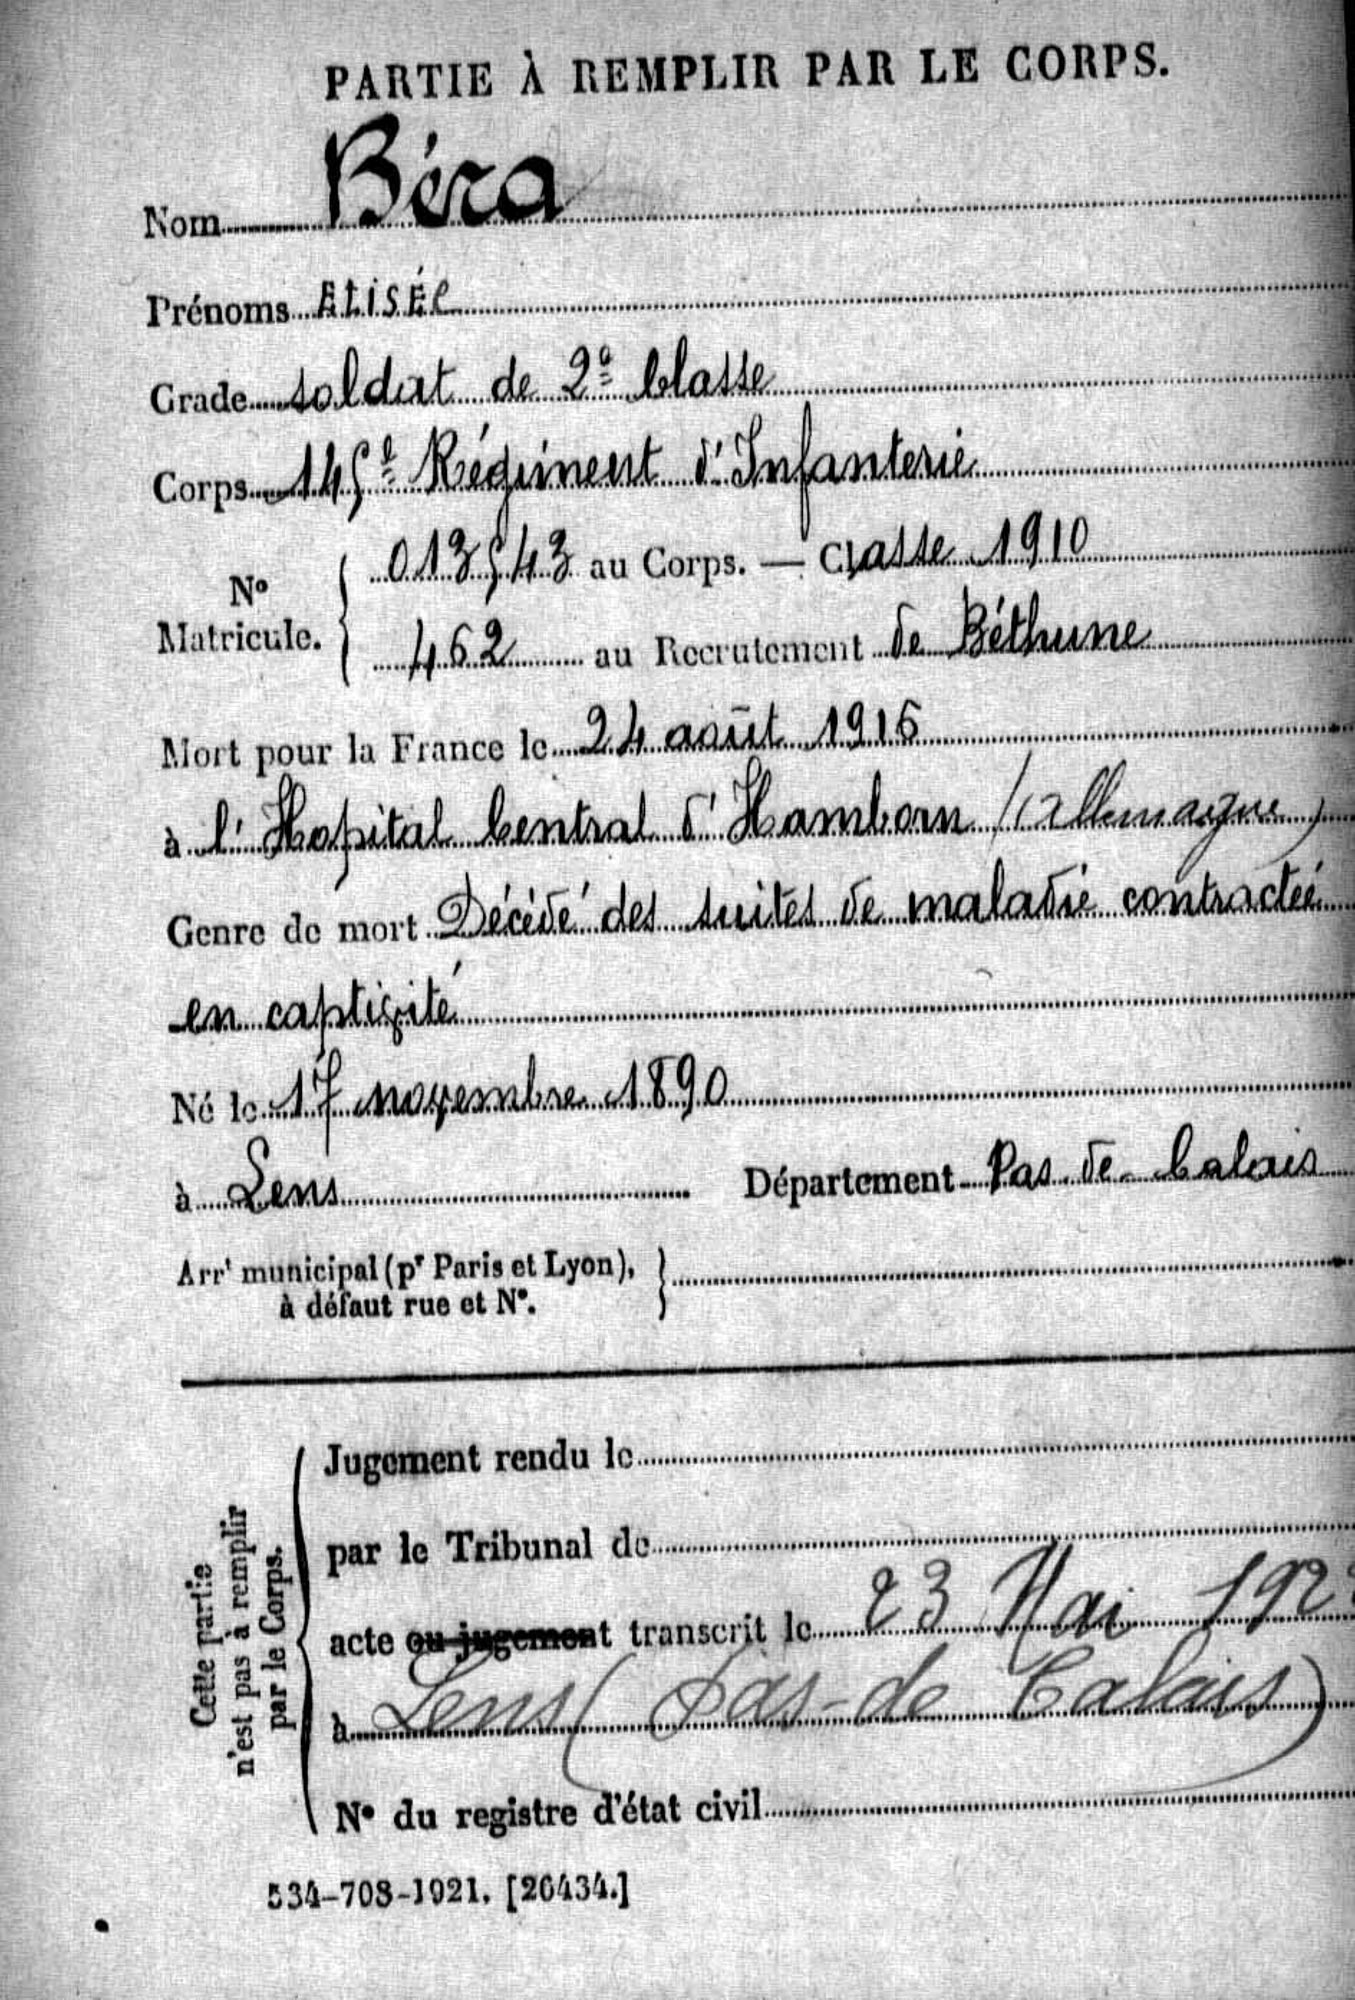 PARTIE À REMPLIR PAR LE CORPS.
Nom Béra
Prénoms ELISÉE
Grade soldat de 2e Classe
Corps 145e Régiment d'Infanterie
No Matricule. 013543 au Corps. — Classe 1910
462 au Recrutement de Béthune
Mort pour la France le 24 août 1916
à l'Hopital Central d'Hamborn (Allemagne)
Genre de mort Décédé des suites de maladie contractée
en captivité
Né le 17 novembre 1890
à Lens Département Pas de Calais
Arrt municipal (pr Paris et Lyon),
à défaut rue et No.
Cette partie
n'est pas à remplir
par le Corps.
Jugement rendu le
par le Tribunal de
acte ou jugement transcrit le 23 Mai
à Lens (Pas-de Calais)
No du registre d'état civil
534-708-1921. [26434.]